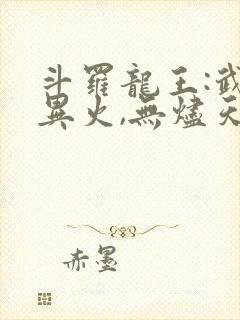 斗羅龍王:武
異火,無燼天
赤墨